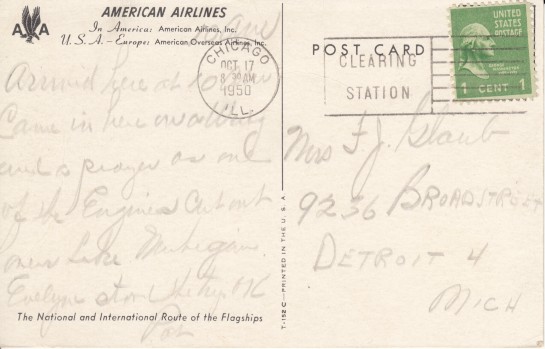 AMERICAN AIRLINES
In America: American Airlines, Inc.
U.S.A.-Europe: American Overseas Airlines, Inc.
AA
Arrived here at 10
Came in here on a Wing
and a prayer as one
of the Engines cut out
over Lake Michigan
Evelyn stood the trip OK
Pat
The National and International Route of the Flagships
T-152 C—PRINTED IN THE U. S. A.
POST CARD
CHICAGO
OCT 17
8 30 AM
1950
ILL.
CLEARING
STATION
UNITED
STATES
POSTAGE
1 CENT 1
Mrs F. J. Staub
9236 BROADSTREET
DETROIT 4
MICH